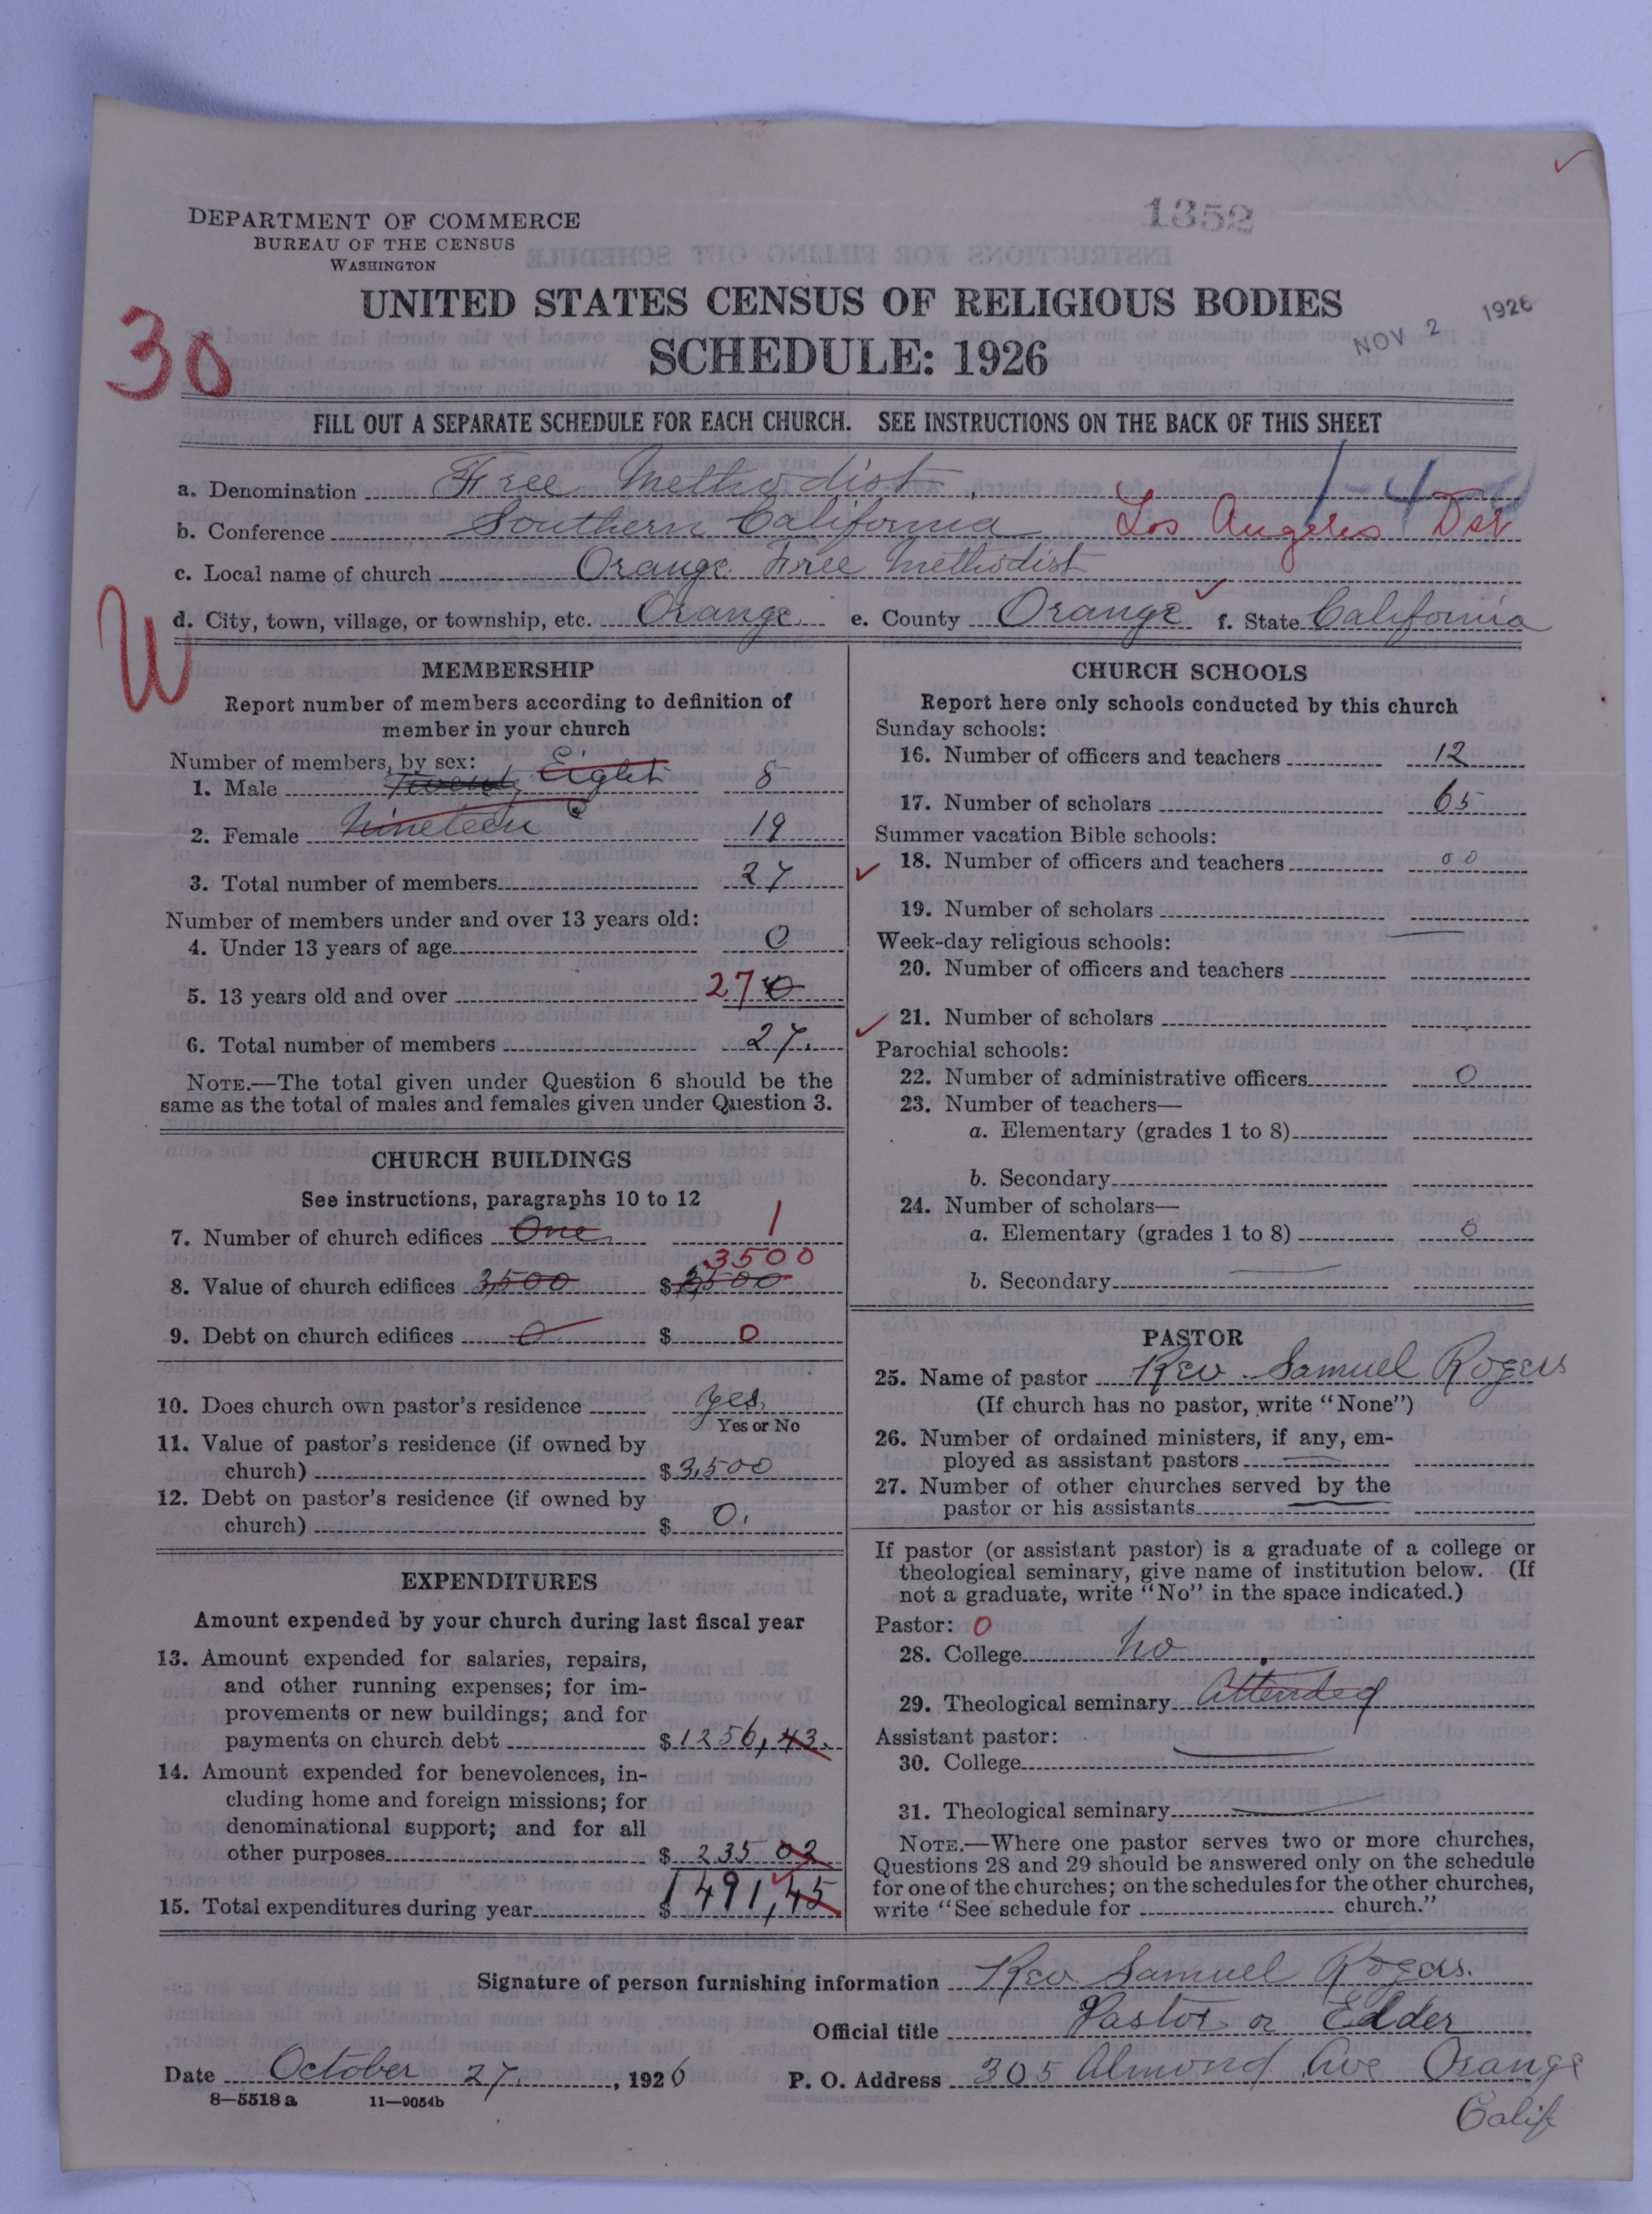 1352
DEPARTMENT OF COMMERCE
BUREAU OF THE CENSUS
WASHINGTON
UNITED STATES CENSUS OF RELIGIOUS BODIES
NOV 2 1926
SCHEDULE: 1926
30
FILL OUT A SEPARATE SCHEDULE FOR EACH CHURCH. SEE INSTRUCTIONS ON THE BACK OF THIS SHEET
a. Denomination Free Methodist
b. Conference Southern California Los Angeles Dst
c. Local name of church Orange Free Methodist
d. City, town, village, or township, etc. Orange e. County Orange f. State California
W
MEMBERSHIP
Report number of members according to definition of
member in your church
Number of members, by sex:
1. Male Eight 8
2. Female Nineteen 19
3. Total number of members 27
Number of members under and over 13 years old:
4. Under 13 years of age 0
5. 13 years old and over 27 0
6. Total number of members 27.
NOTE.—The total given under Question 6 should be the
same as the total of males and females given under Question 3.
CHURCH BUILDINGS
See instructions, paragraphs 10 to 12
7. Number of church edifices One 1
3500
8. Value of church edifices 3,500 $ 3,500
9. Debt on church edifices 0 $ 0
10. Does church own pastor's residence yes.
Yes or No
11. Value of pastor's residence (if owned by
church) $ 3,500
12. Debt on pastor's residence (if owned by
church) $ 0.
EXPENDITURES
Amount expended by your church during last fiscal year
13. Amount expended for salaries, repairs,
and other running expenses; for im-
provements or new buildings; and for
payments on church debt $ 1256,43.
14. Amount expended for benevolences, in-
cluding home and foreign missions; for
denominational support; and for all
other purposes $ 235 02
15. Total expenditures during year $ 1491,45
CHURCH SCHOOLS
Report here only schools conducted by this church
Sunday schools:
16. Number of officers and teachers 12
17. Number of scholars 65
Summer vacation Bible schools:
18. Number of officers and teachers 00
19. Number of scholars
Week-day religious schools:
20. Number of officers and teachers
21. Number of scholars
Parochial schools:
22. Number of administrative officers 0
23. Number of teachers—
a. Elementary (grades 1 to 8)
b. Secondary
24. Number of scholars—
a. Elementary (grades 1 to 8) 0
b. Secondary
PASTOR
25. Name of pastor Rev. Samuel Rogers
(If church has no pastor, write "None")
26. Number of ordained ministers, if any, em-
ployed as assistant pastors
27. Number of other churches served by the
pastor or his assistants
If pastor (or assistant pastor) is a graduate of a college or
theological seminary, give name of institution below. (If
not a graduate, write "No" in the space indicated.)
Pastor: 0
28. College No
29. Theological seminary Attended
Assistant pastor:
30. College
31. Theological seminary
NOTE.—Where one pastor serves two or more churches,
Questions 28 and 29 should be answered only on the schedule
for one of the churches; on the schedules for the other churches,
write "See schedule for church."
Signature of person furnishing information Rev Samuel Rogers.
Official title Pastor or Elder
Date October 27, 1926 P. O. Address 305 Almond Ave Orange
Calif
8—5518 a 11—9054b